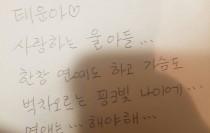 태윤아♡
사랑하는 울아들...
한창 연애도 하고 가슴도
벅차오르는 핑크빛 나이에...
연애는... 해야해...